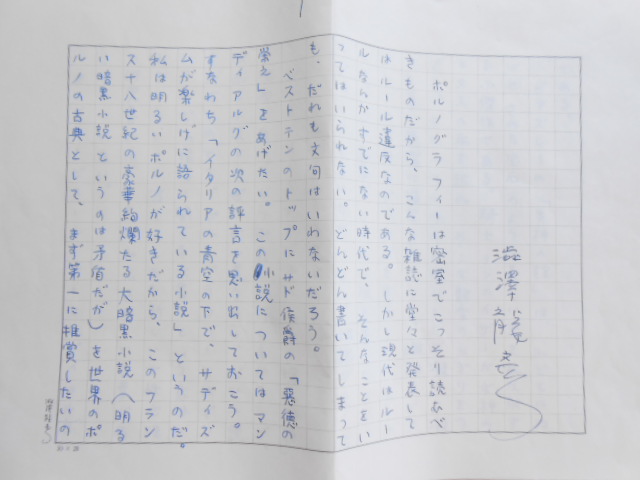 澁澤龍彦
ポルノグラフィーは密室でこっそり読むべ
きものだから、こんな雑誌に堂々と発表して
はルール違反なのである。しかし現代はルー
ルなんかすでにない時代で、そんなことをい
ってはいられない。どんどん書いてしまって
も、だれも文句はいわないだろう。
ベストテンのトップにサド侯爵の「悪徳の
栄え」をあげたい。この小説についてはマン
ディアルグの次の評言を思い出しておこう。
すなわち「イタリアの青空の下で、サディズ
ムが楽しげに語られている小説」というのだ。
私は明るいポルノが好きだから、このフラン
ス十八世紀の豪華絢爛たる大暗黒小説(明る
い暗黒小説というのは矛盾だが)を世界のポ
ルノの古典として、まず第一に推賞したいの